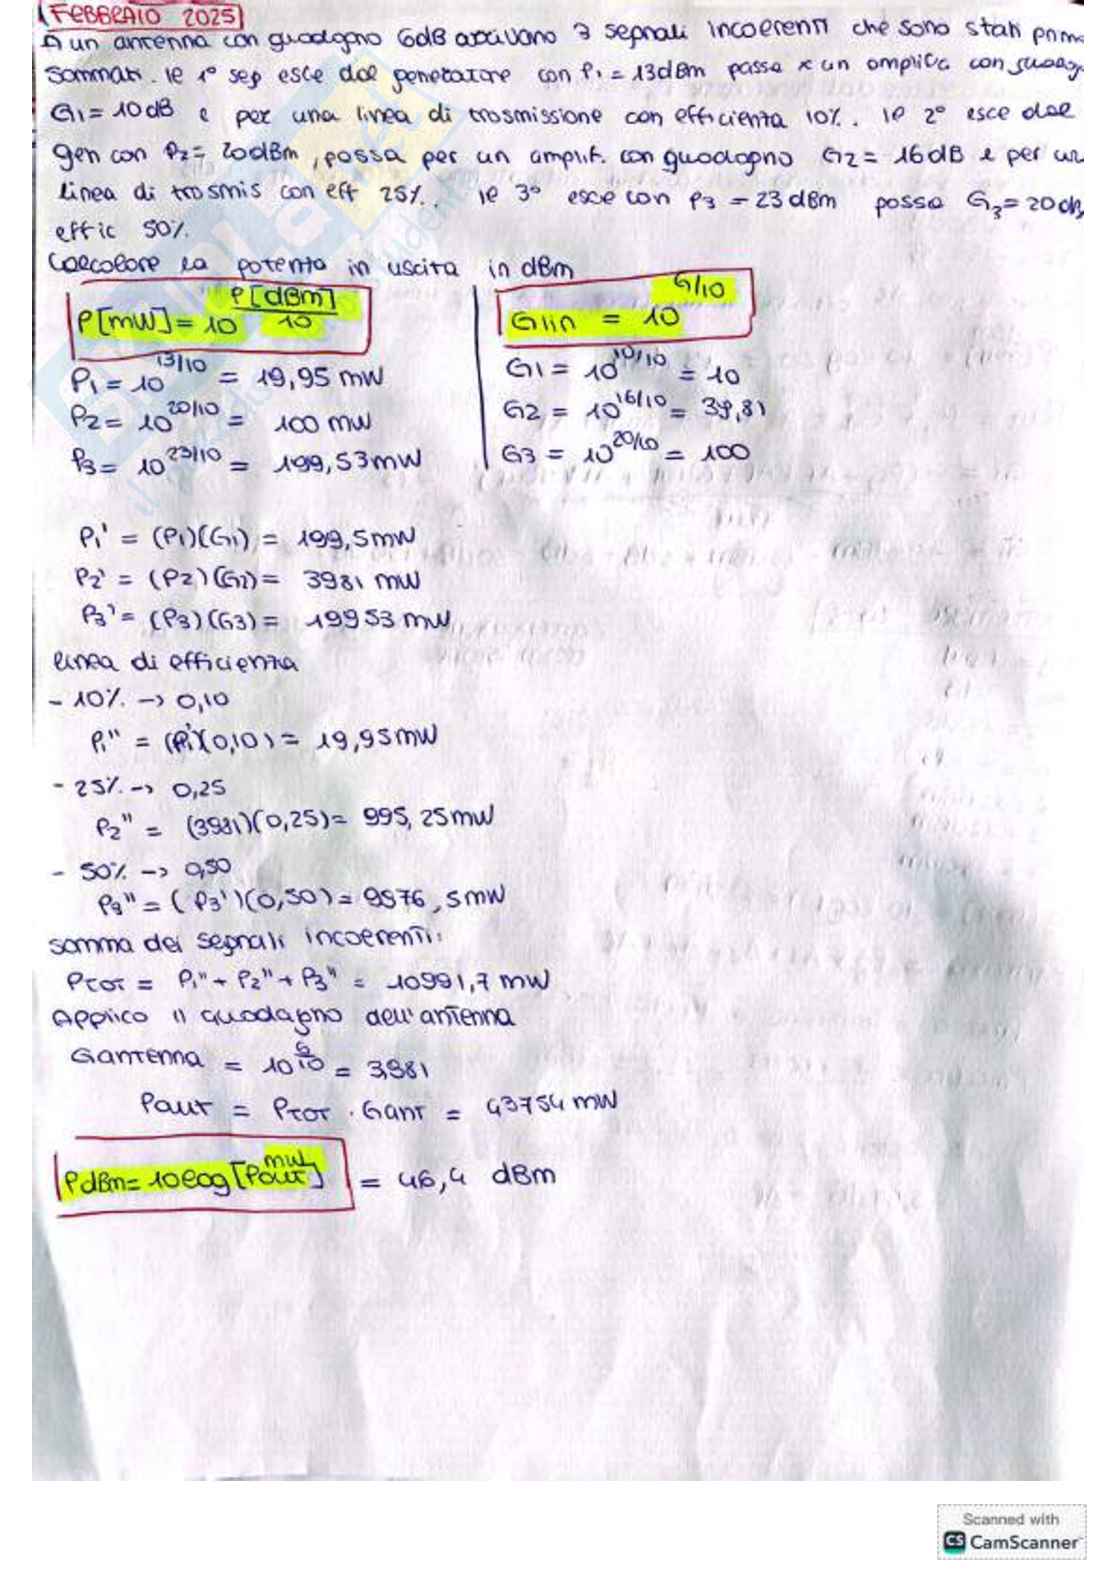 FEBBRAIO 2025
A un antenna con guadagno 6dB arrivano 3 segnali incoerenti che sono stati prima
sommati. Il 1° seg esce dal generatore con P1 = 13dBm passa x un amplific con guadag.
G1 = 10dB e per una linea di trasmissione con efficienza 10%. Il 2° esce dal
gen con P2 = 20dBm, passa per un amplif. con guadagno G2 = 16dB e per un
linea di trasmis con eff 25%. Il 3° esce con P3 = 23dBm passa G3 = 20dB
effic 50%.
Calcolare la potenza in uscita in dBm
P[mW] = 10^(P[dBm]/10)
Glin = 10^(G/10)
P1 = 10^(13/10) = 19,95 mW
P2 = 10^(20/10) = 100 mW
P3 = 10^(23/10) = 199,53mW
G1 = 10^(10/10) = 10
G2 = 10^(16/10) = 39,81
G3 = 10^(20/10) = 100
P1' = (P1)(G1) = 199,5mW
P2' = (P2)(G2) = 3981 mW
P3' = (P3)(G3) = 19953 mW
linea di efficienza
- 10% -> 0,10
P1'' = (P1')(0,10) = 19,95mW
- 25% -> 0,25
P2'' = (3981)(0,25) = 995,25mW
- 50% -> 0,50
P3'' = (P3')(0,50) = 9976,5mW
somma dei segnali incoerenti:
Ptot = P1'' + P2'' + P3'' = 10991,7 mW
Applico il guadagno dell'antenna
Gantenna = 10^(6/10) = 3,981
Pout = Ptot . Gant = 43754 mW
PdBm = 10log[Pout mW] = 46,4 dBm
Scanned with
CS CamScanner